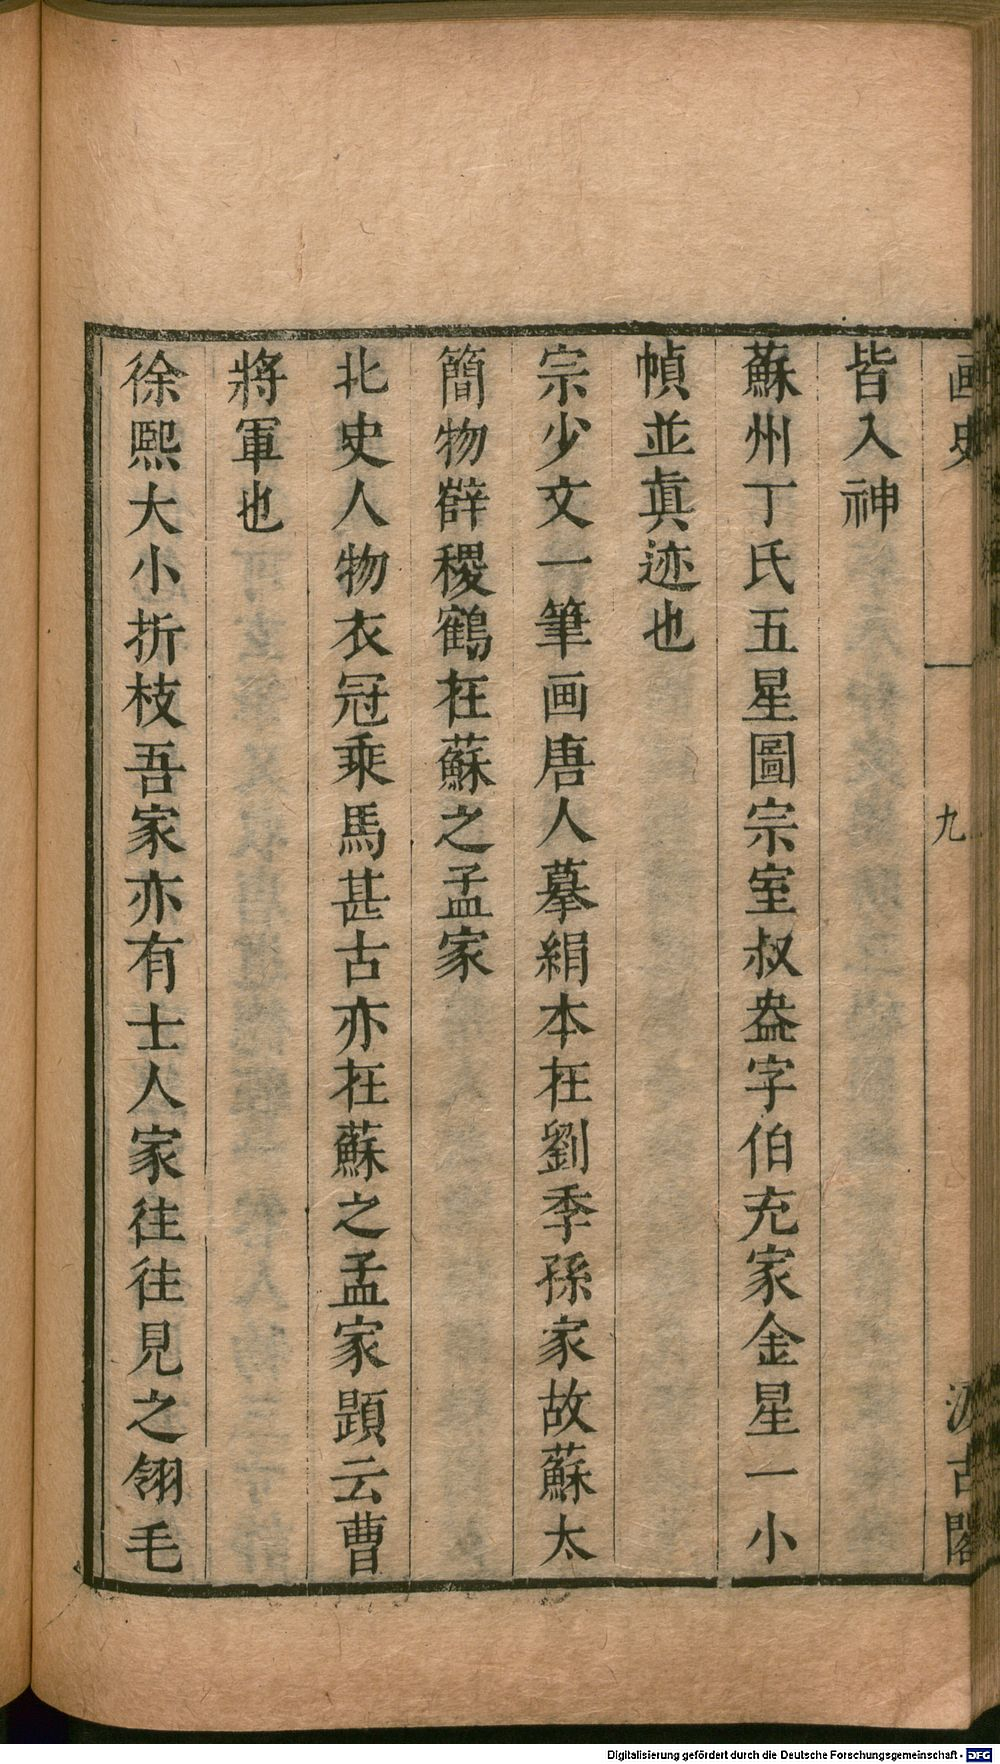 画史
九
汲古閣
皆入神
蘇州丁氏五星圖宗室叔盎字伯充家金星一小
幀並眞迹也
宗少文一筆画唐人摹絹本在劉季孫家故蘇太
簡物薛稷鶴在蘇之孟家
北史人物衣冠乘馬甚古亦在蘇之孟家題云曹
將軍也
徐熙大小折枝吾家亦有士人家往往見之翎毛
Digitalisierung gefördert durch die Deutsche Forschungsgemeinschaft - DFG